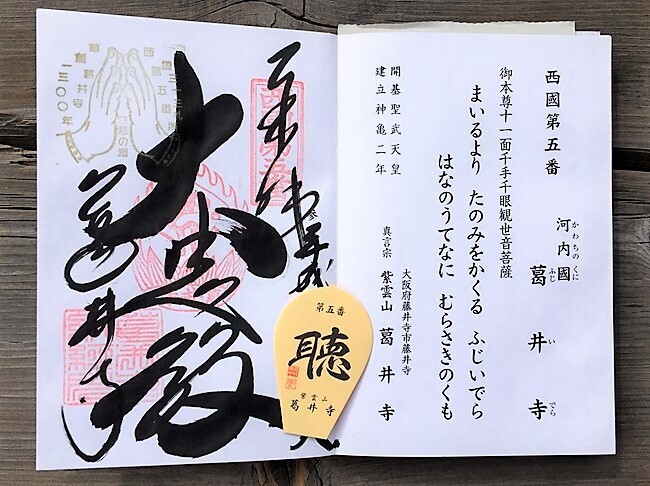 西國第五番
河内國 葛井寺
かわちのくに
ふじいでら
御本尊十一面千手千眼観世音菩薩
まいるより たのみをかくる ふじいでら
はなのうてなに むらさきのくも
開基聖武天皇
建立神亀二年
大阪府藤井寺市藤井寺
真言宗 紫雲山 葛井寺
大悲殿
葛井寺
第五番
聴
紫雲山
葛井寺